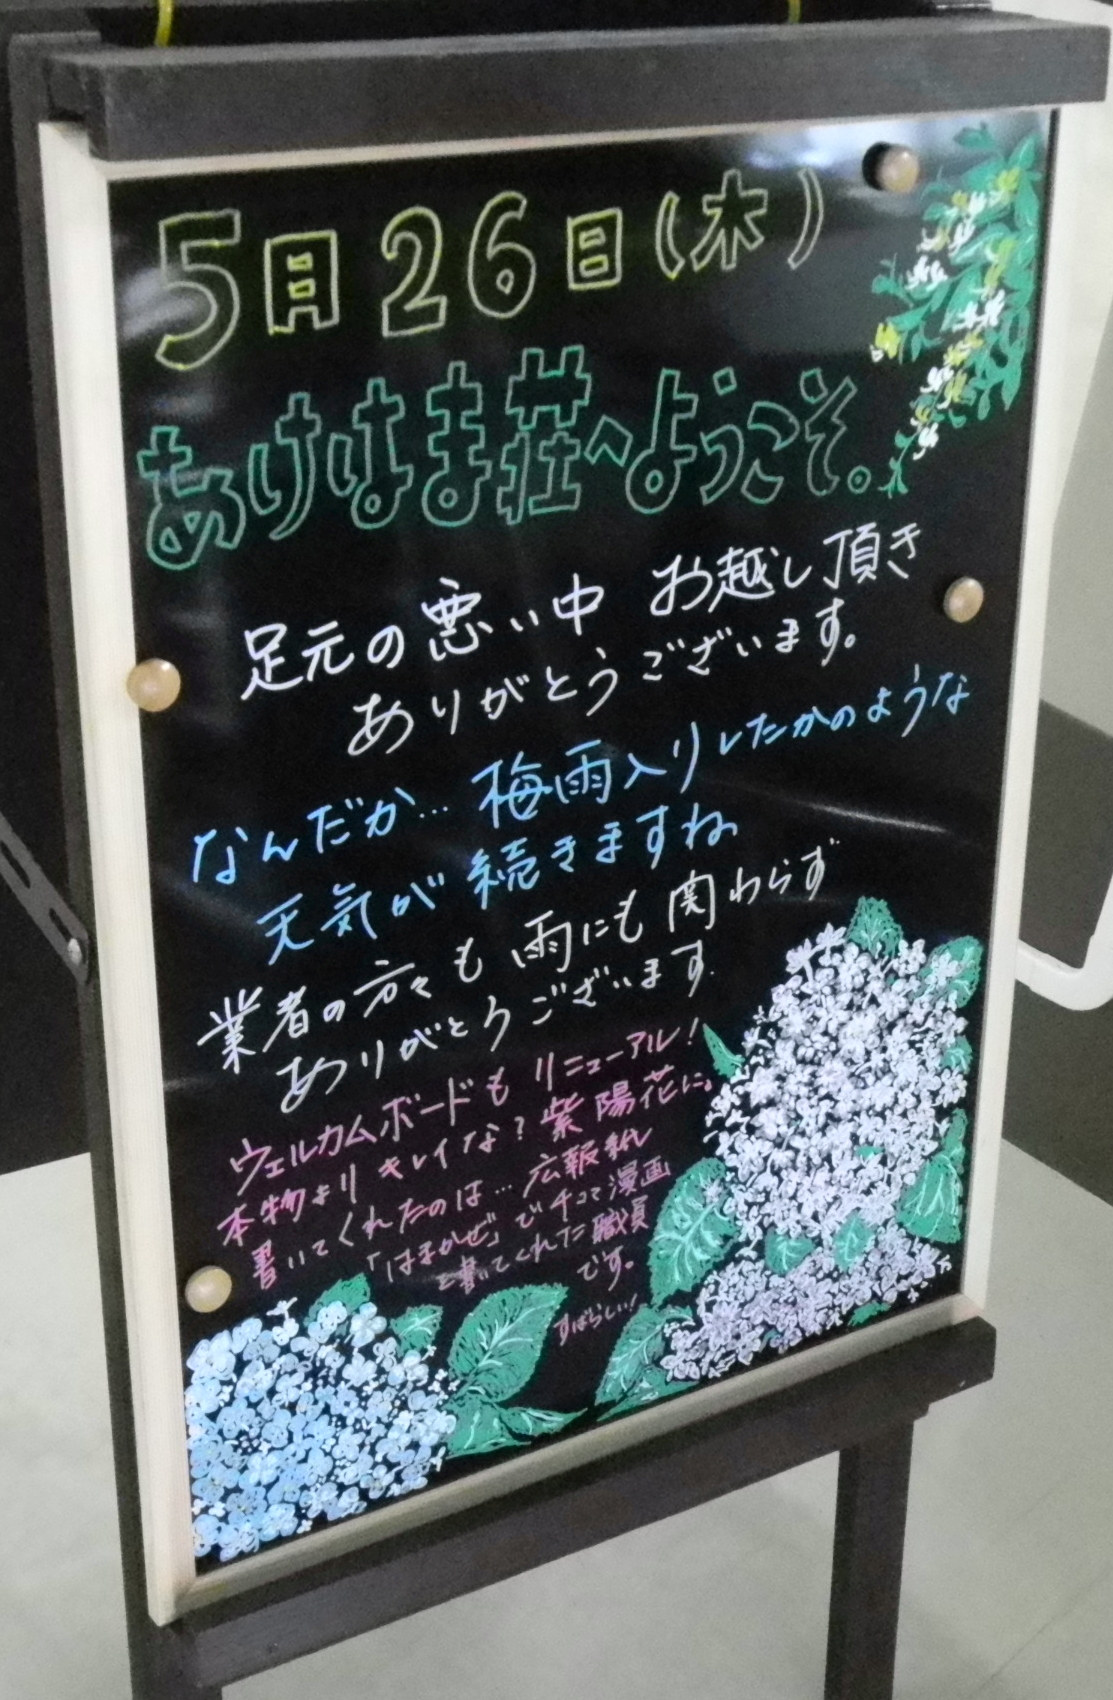 5月26日(木)
あけはま荘へようこそ。
足元の悪い中 お越し頂き
ありがとうございます。
なんだか… 梅雨入りしたかのような
天気が続きますね
業者の方々も 雨にも関わらず
ありがとうございます.
ウェルカムボードも リニューアル!
本物よりキレイな?紫陽花に。
書いてくれたのは… 広報紙
「はまかぜ」で4コマ漫画
を書いてくれた職員
です。
すばらしい!